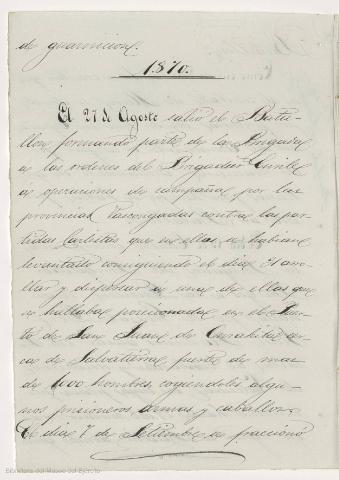 de guarnicion.
1870.
El 27 de Agosto salió el Bata-
llon formando parte de la Brigada
a las ordenes del Brigadier
á operaciones de campaña por las
provincias Vascongadas contra las par-
tidas Carlistas que en ellas se habian
levantado consiguiendo el dia 31 arro-
llar y dispersar a una de ellas que
se hallaba posicionada en el Puer-
to de San Juan de cer-
ca de Salvatierra fuerte de mas
de 600 hombres cogiendoles algu-
nos prisioneros armas y caballos.
El dia 7 de Setiembre se fraccionó
Biblioteca del Museo del Ejército